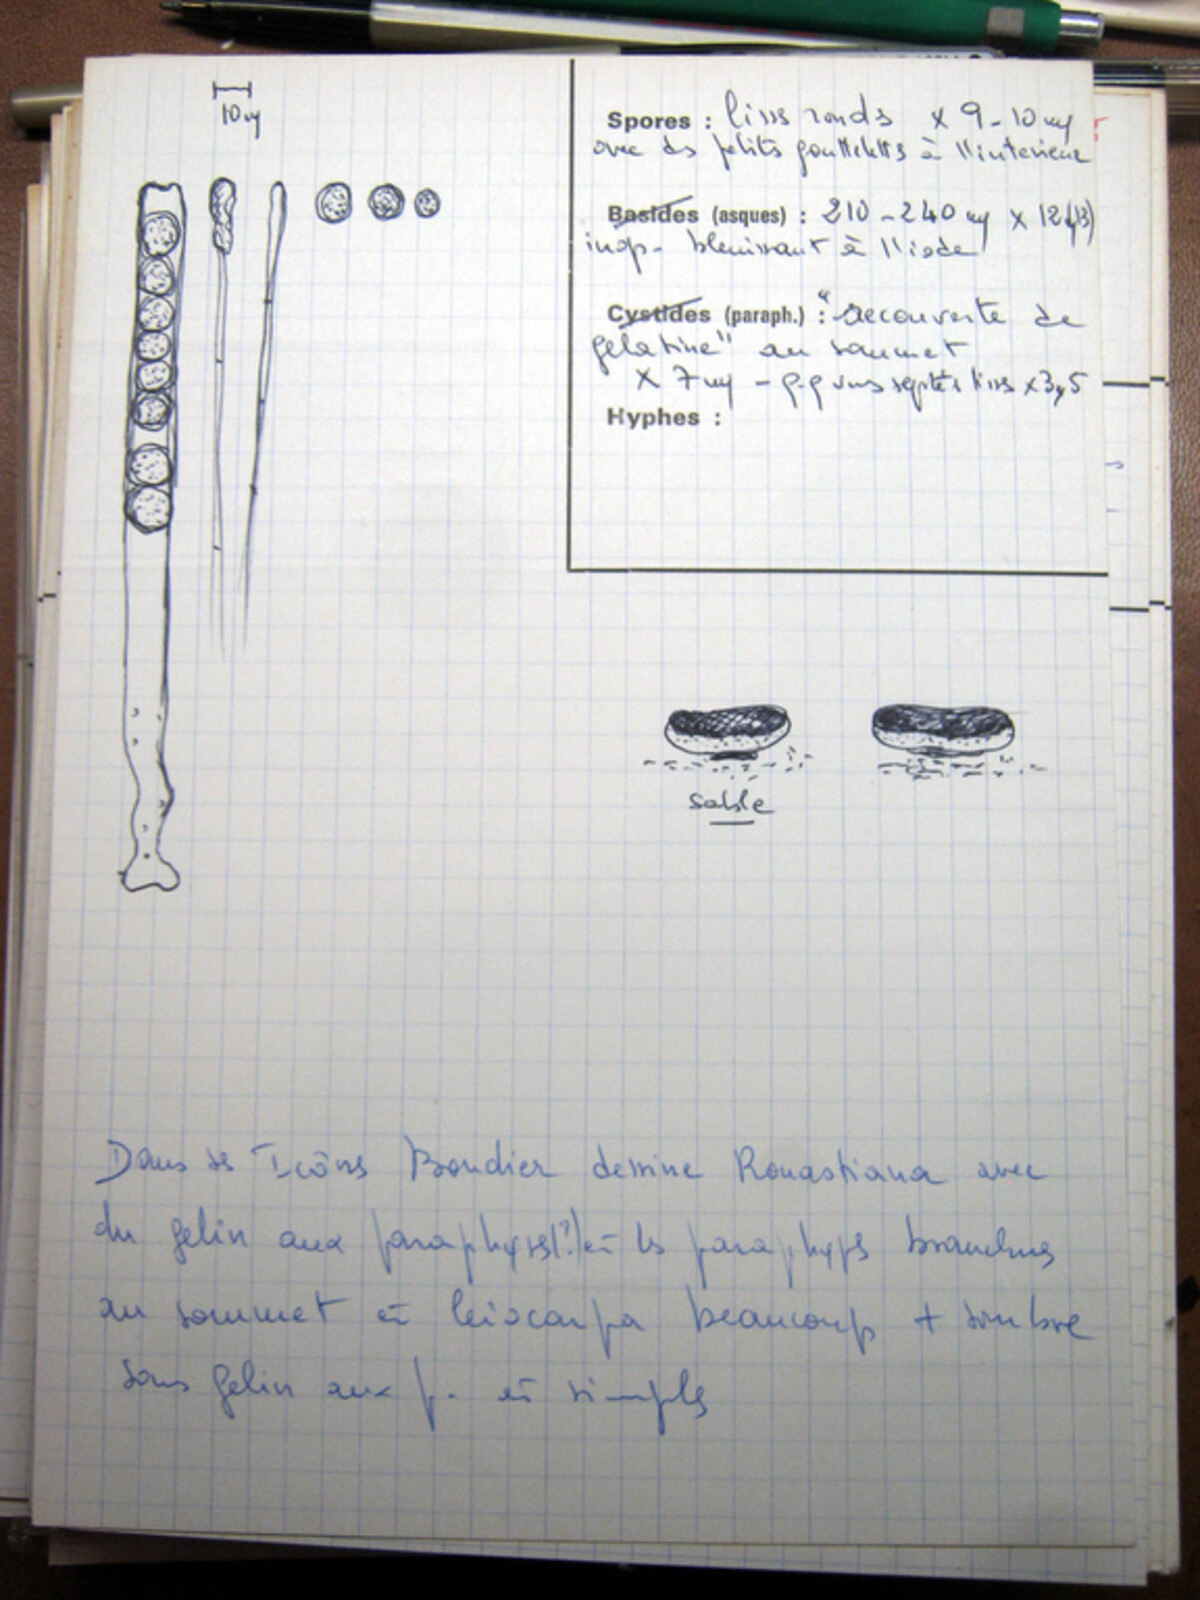 10 µ
Spores : liss ronds x 9-10 µ
avec ds petits gouttelettes à l'interieur
Basides (asques) : 210-240 µ x 12(13)
inop. bleuissant à l'iode
Cystides (paraph.) : "recouverte de
gelatine" au sommet
x 7 µ - septés liss x 3,5
Hyphes :
sable
Dans ss Icôns Boudier dessine Ronastiana avec
du gelin aux paraphyss(?) et ls paraphyss branchus
au sommet et leiocarpa beaucoup + sombre
sans gelin aux p. et simpls